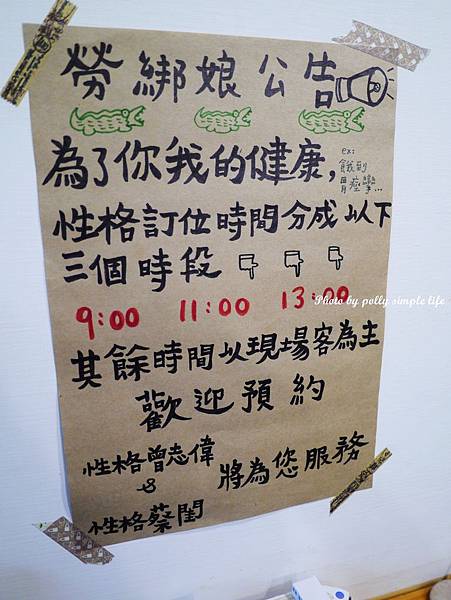 勞綁娘公告
為了你我的健康,
ex:
餓到
胃痙攣...
性格訂位時間分成以下
三個時段
9:00 11:00 13:00
Photo by polly simple life
其餘時間以現場客為主
歡迎預約
性格曾志偉
&
性格蔡閨
將為您服務